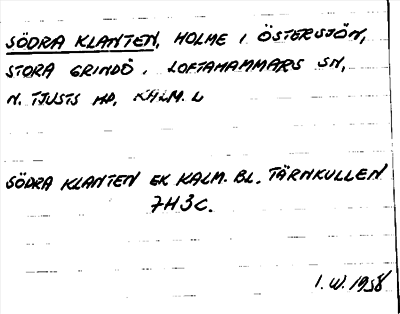 SÖDRA KLANTEN, HOLME I ÖSTERSJÖN,
STORA GRINDÖ, LOFTAHAMMARS SN,
N. TJUSTS HD, KALM. L
SÖDRA KLANTEN EK KALM. BL. TÄRNKULLEN
7H3C.
I.W. 1958